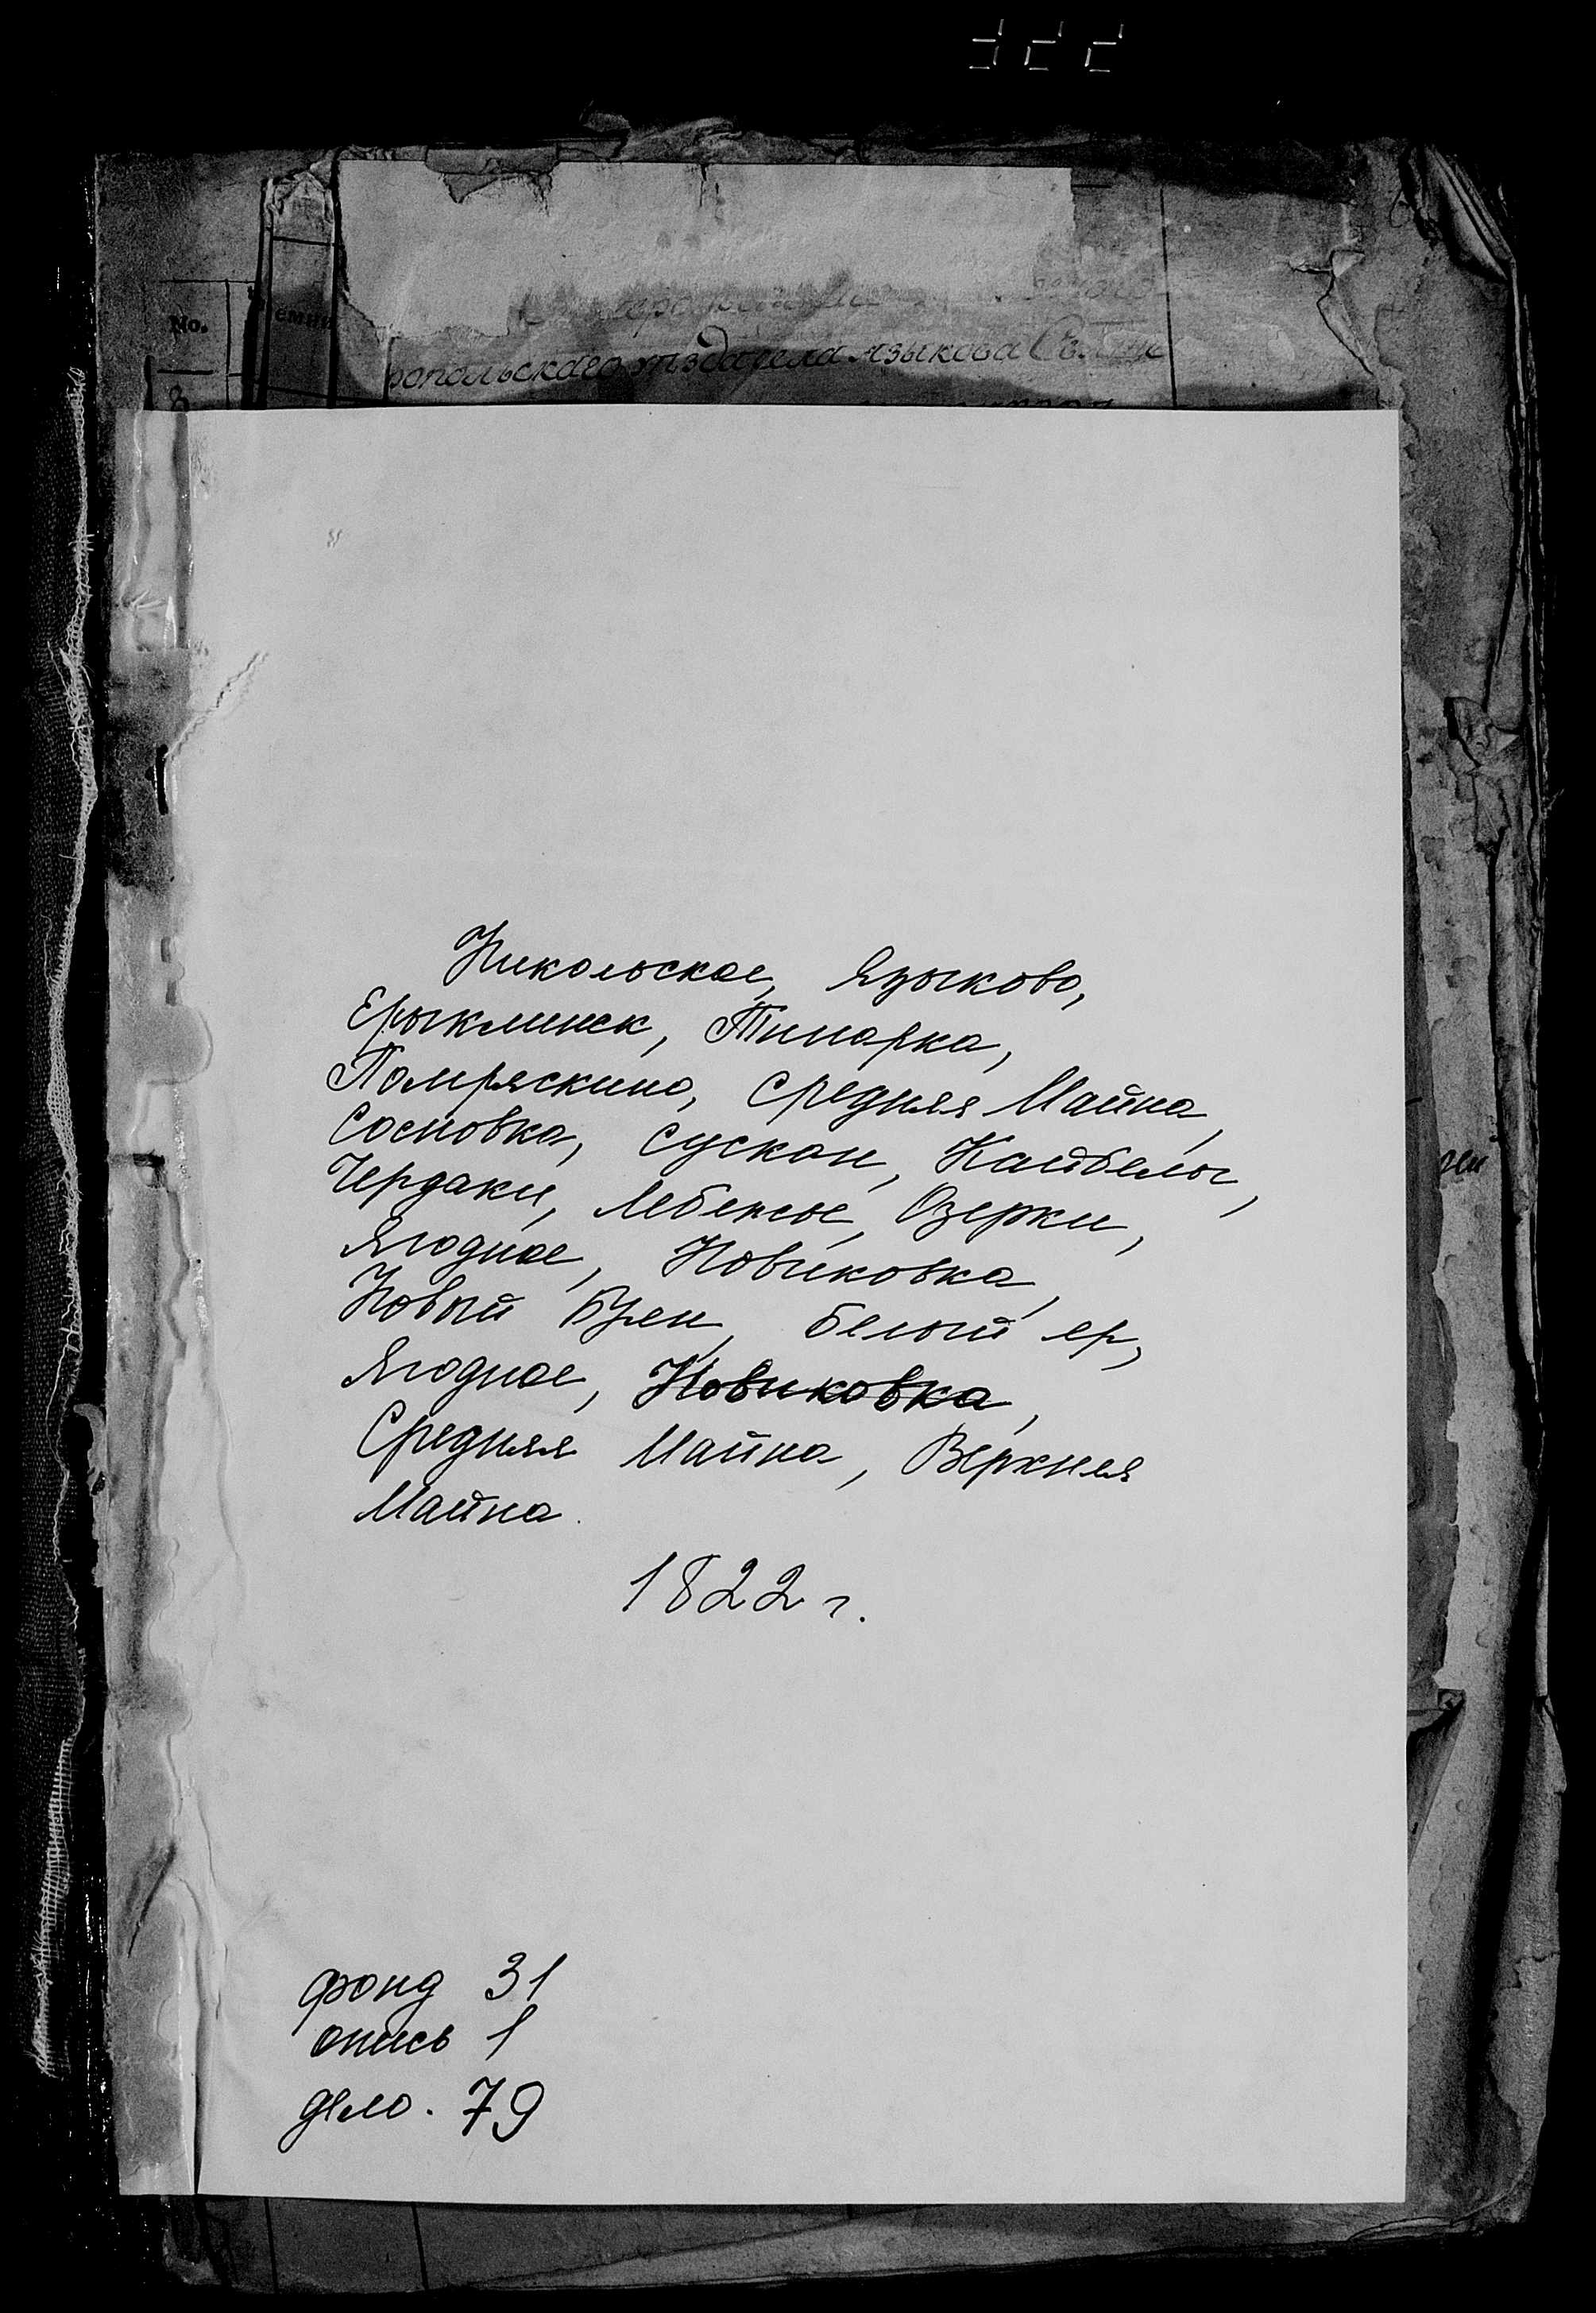 No.
8
ропольскаго уѣзда села Языкова
Никольское, Языково,
Ерыклинск, Тинарка,
Помряскино, Средняя Майна,
Сосновка, Сускан, Кайбелы,
Чердаки, Лебежье, Озерки,
Ягодное, Новиковка,
Новый Урен, белый яр,
Ягодное, Новиковка,
Средняя Майна, Верхняя
Майна.
1822 г.
фонд 31
опись 1
дело. 79